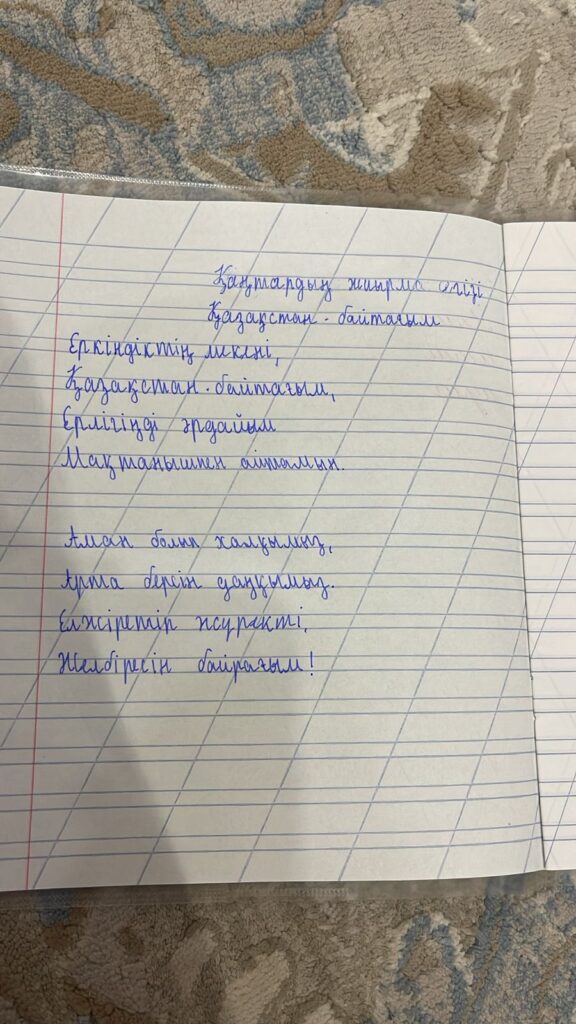 Қаңтардың жиырма сегізі
Қазақстан - байтағым
Еркіндіктің мекені,
Қазақстан - байтағым,
Ерлігіңді әрдайым
Мақтанышпен айтамын.
Аман болып халқымыз,
Арта берсін даңқымыз.
Елжіретіп жүректі,
Желбіресін байрағым!